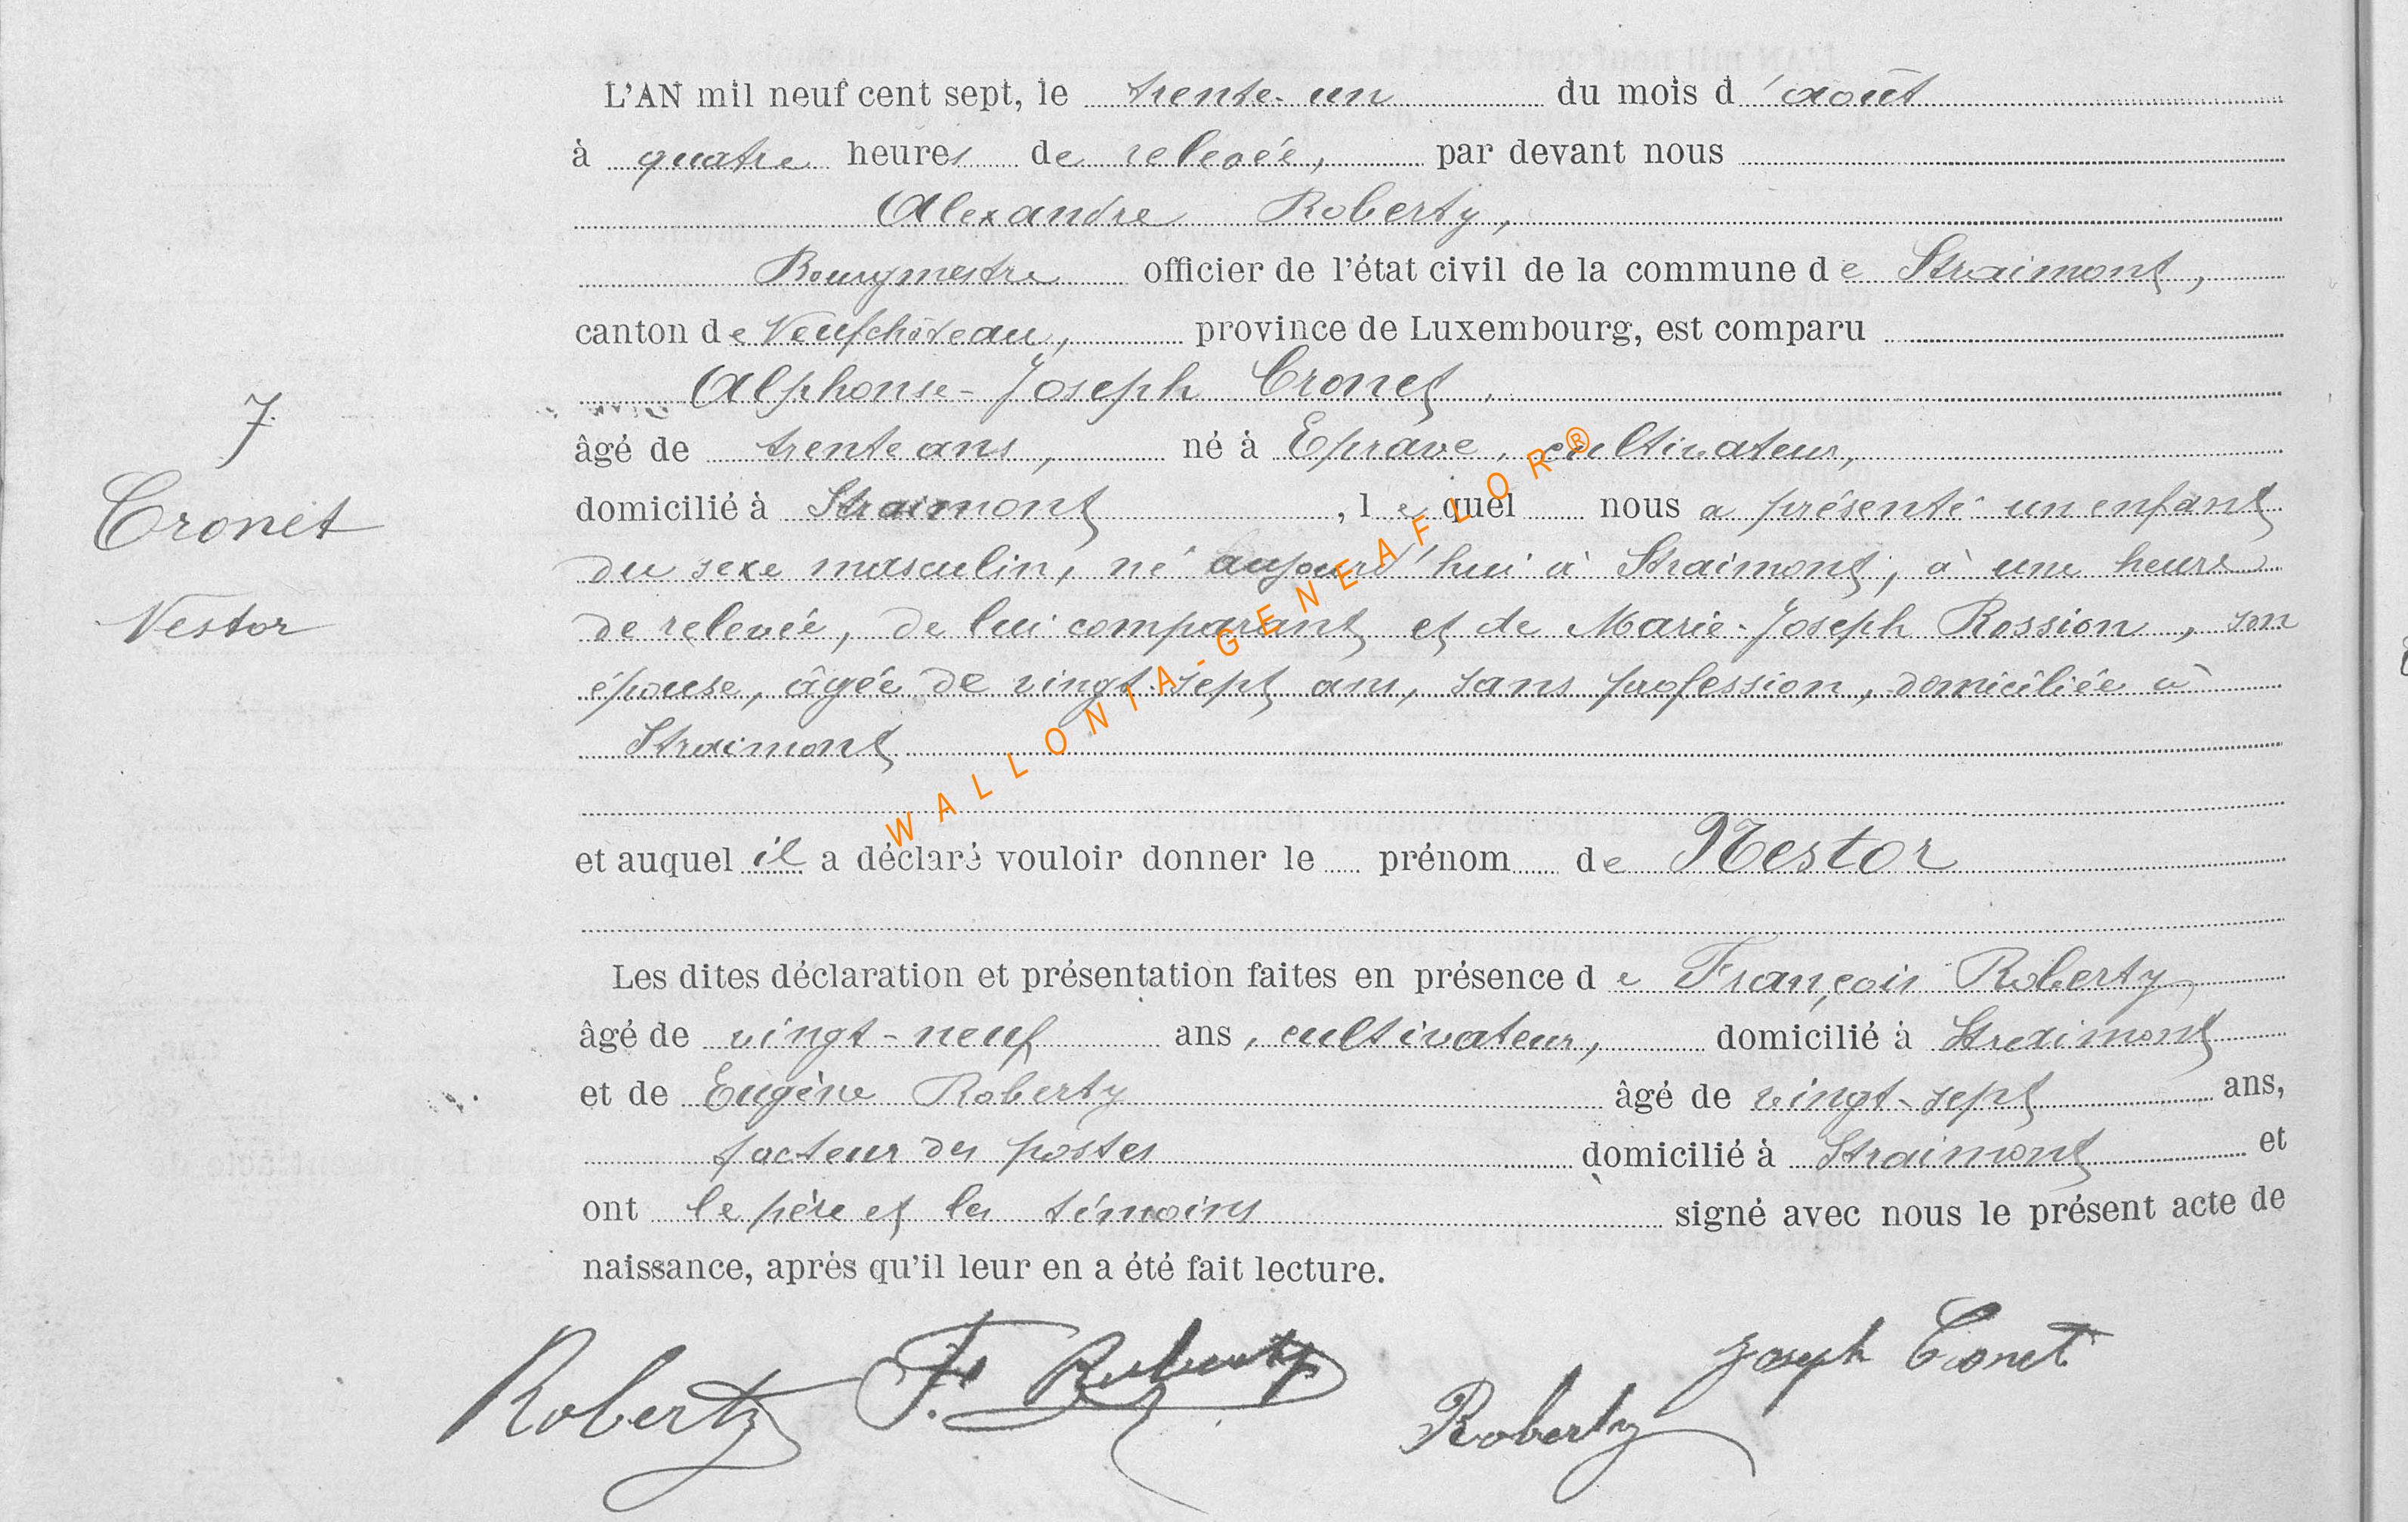 L'AN mil neuf cent sept, le trente-un du mois d'août
à quatre heures de relevée, par devant nous
Alexandre Roberty,
Bourgmestre officier de l'état civil de la commune de Straimont,
canton de Neufchâteau, province de Luxembourg, est comparu
Alphonse-Joseph Cronet,
âgé de trente ans, né à Eprave, cultivateur,
domicilié à Straimont, lequel nous a présenté un enfant
du sexe masculin, né aujourd'hui à Straimont, à une heure
de relevée, de lui comparant et de Marie-Joseph Rossion, son
épouse, âgée de vingt-sept ans, sans profession, domiciliée à
Straimont
7
Cronet
Nestor
et auquel il a déclaré vouloir donner le prénom de Nestor
Les dites déclaration et présentation faites en présence de François Roberty
âgé de vingt-neuf ans, cultivateur, domicilié à Straimont
et de Eugène Roberty âgé de vingt-sept ans,
facteur des postes domicilié à Straimont et
ont le père et les témoins signé avec nous le présent acte de
naissance, après qu'il leur en a été fait lecture.
Roberty F. Roberty Roberty Joseph Cronet
WALLONIA-GENEAFLOR®